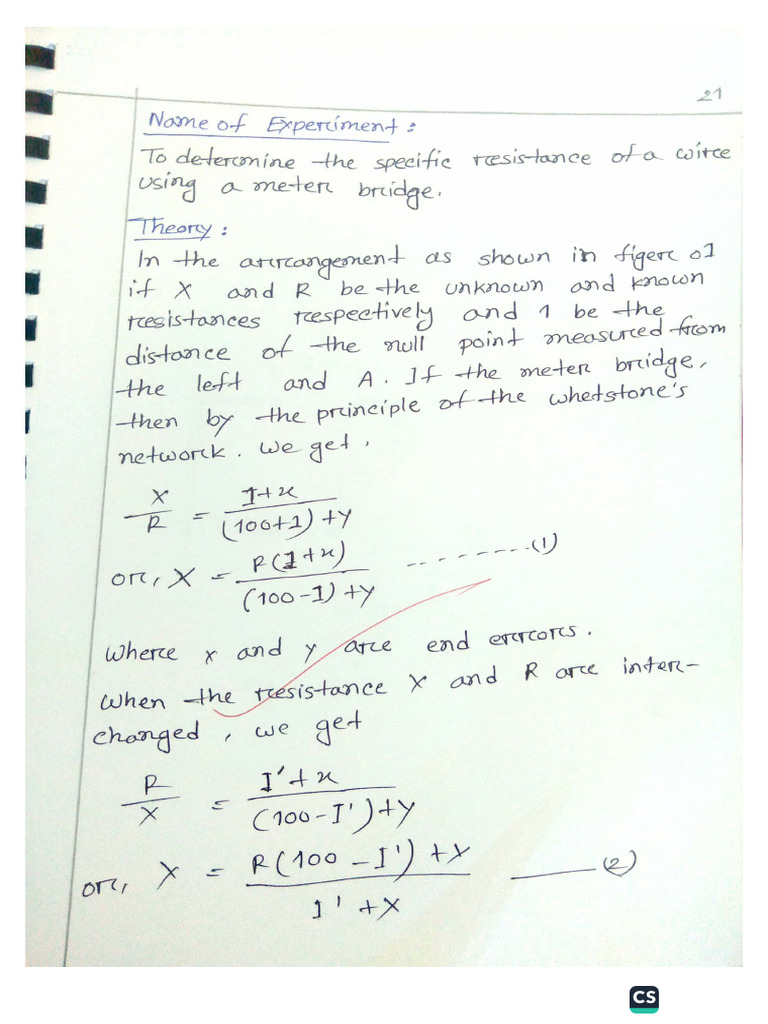 21
Name of Experiment:
To determine the specific resistance of a wire
using a meter bridge.
Theory:
In the arrangement as shown in figerc 01
if X and R be the unknown and known
resistances respectively and 1 be the
distance of the null point measured from
the left and A. If the meter bridge,
then by the principle of the whetstone's
network. We get,
X/R = I+x/(100+1)+y
or, X = R(1+x)/(100-1)+y --------(1)
Where x and y are end errors.
When the resistance X and R are inter-
changed, we get
R/X = I'+x/(100-I')+y
or, X = R(100-I')+X/I'+X ——(2)
CS